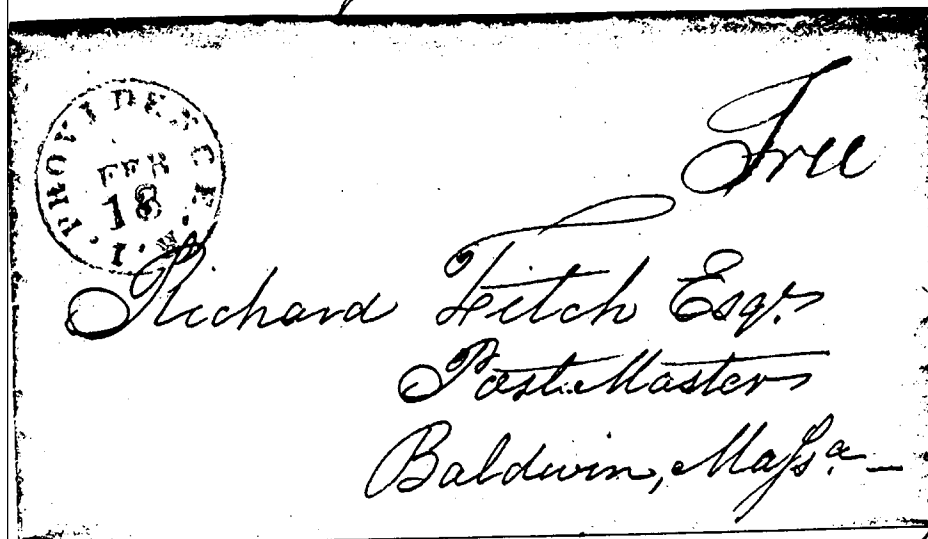 PROVIDENCE R.I.
FEB
18
Free
Richard Fitch Esqr.
Post Master
Baldwin, Massa. —